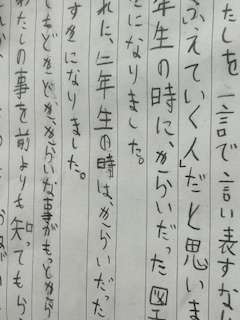 たしを一言で言い表すな
ふえていく人」だと思いま
年生の時に、きらいだった図工
になりました。
れた、二年生の時は、きらいだった
すきになりました。
きらいな事がもっときら
たしの事を前よりも知ってもら